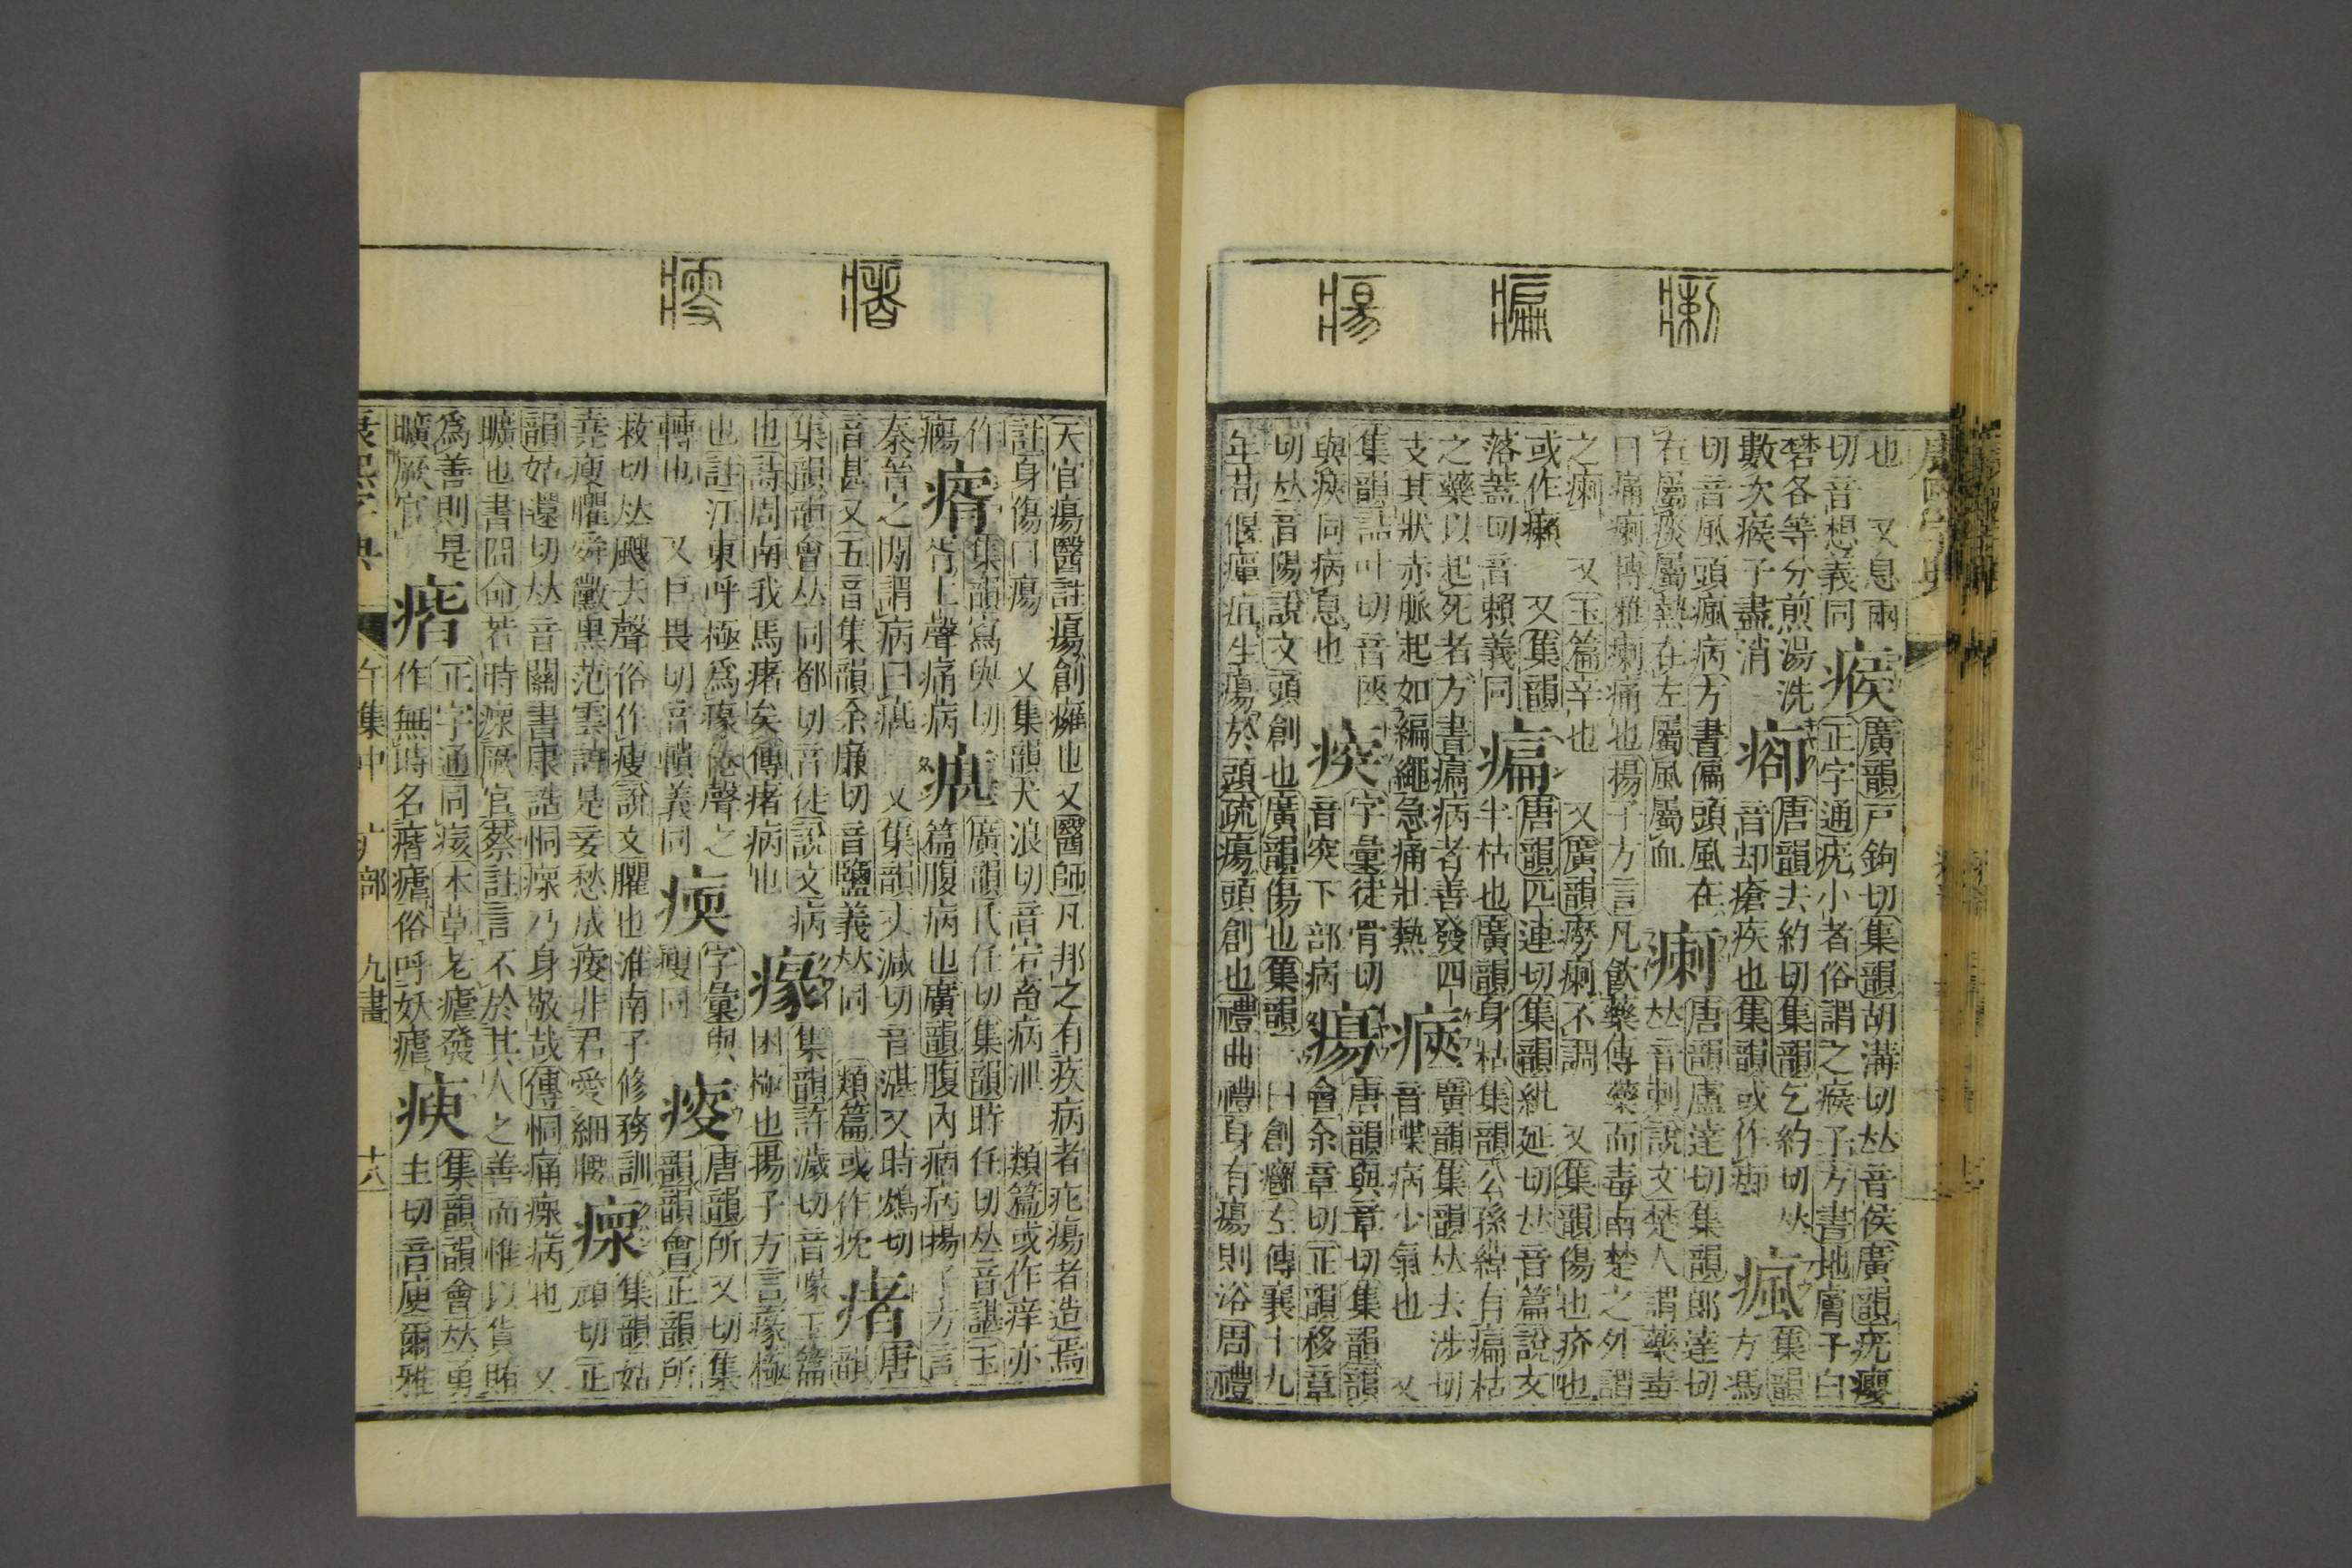 康熙字典
也 又息兩
切音想義同
瘊
廣韻戸鉤切集韻胡溝切𠀤音侯廣韻疣癭
正字通疣小者俗謂之瘊子方書地膚子白
礬各等分煎湯洗
數次瘊子盡消
唐韻去約切集韻乞約切𠀤
音却瘡疾也集韻或作
瘋
集韻
方馮
切音風頭瘋病方書偏頭風在
右屬痰屬熱在左屬風屬血
瘌
唐韻盧達切集韻郎達切
𠀤音剌說文楚人謂藥毒
曰痛瘌博雅瘌痛也揚子方言凡飮藥傅藥而毒南楚之外謂
之瘌 又玉篇辛也 又廣韻癆瘌不調 又集韻傷也疥也
或作癩 又集韻
落蓋切音賴義同
㾫
唐韻匹連切集韻紕延切𠀤音篇說文
半枯也廣韻身枯集韻公孫綽有㾫枯
之藥以起死者方書㾫病者善發四
支其狀赤脈起如編繩急痛壯熱
㾜
廣韻集韻𠀤去涉切
病少氣也 又
集韻詰叶切音匧
與㾜同病息也
字彙徒骨切
音突下部病
瘍
唐韻與章切集韻韻
會余章切正韻移章
切𠀤音陽說文頭創也廣韻傷也集韻一曰創癰左傳襄十九
年荀偃癉疽生瘍於頭疏瘍頭創也禮曲禮身有瘍則浴周禮
天官瘍醫註瘍創癰也又醫師凡邦之有疾病者疕瘍者造焉
註身傷曰瘍 又集韻犬浪切音宕畜病泄 類篇或作痒亦
作
集韻寫與切
胥上聲痛病
㽎
廣韻氏任切集韻時任切𠀤音諶玉
篇腹病也廣韻腹內痼病揚子方言
秦晉之閒謂病曰㽎 又集韻丈減切音湛又時鴆切
音甚又五音集韻余廉切音鹽義𠀤同 類篇或作
瘏
唐
韻
集韻韻會𠀤同都切音徒說文病
也詩周南我馬瘏矣傳瘏病也
集韻許濊切音喙玉篇
困極也揚子方言極
也註江東呼極爲倦聲之
轉也 又巨畏切義同
字彙與
瘦同
瘦
唐韻所又切集
韻韻會正韻所
救切𠀤颼去聲俗作瘦說文臞也淮南子修務訓
堯瘦臞舜黴黑范雲詩是妾愁成瘦非君愛細腰
瘝
集韻姑
頑切正
韻姑還切𠀤音關書康誥恫瘝乃身敬哉傳恫痛瘝病也 又
曠也書冏命若時瘝厥官蔡註言不於其人之善而惟以貨賄
爲善則是
曠厥官
正字通同痎本草老瘧發
作無時名瘧俗呼妖瘧
瘐
集韻韻會𠀤勇
主切音庾爾雅
康熙字典 午集中 疒部 九畫 十八